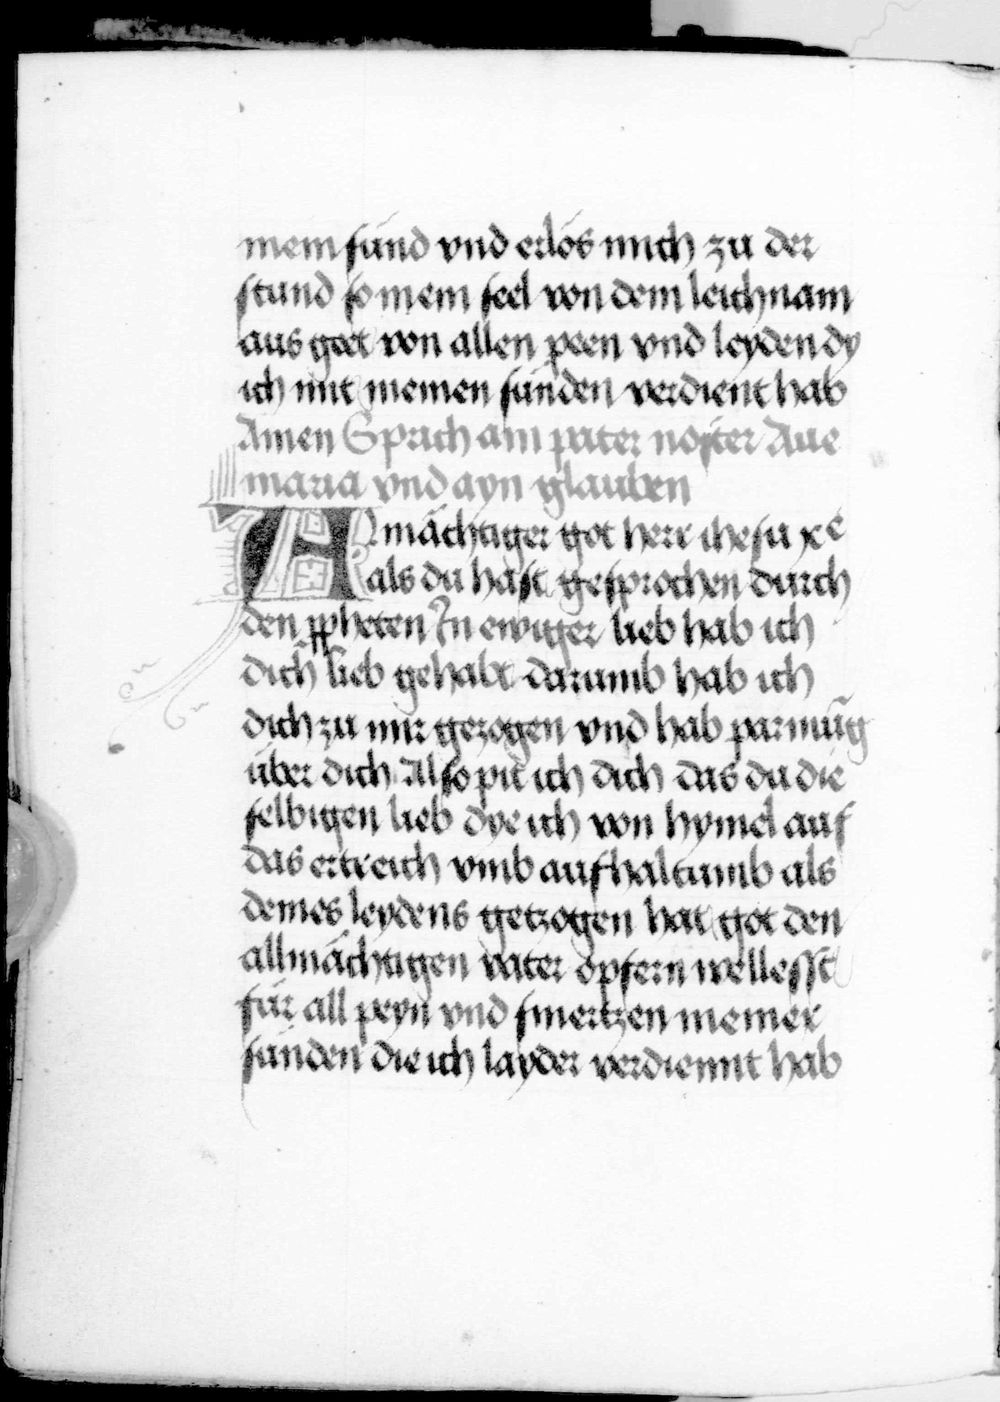 mein sünd vnd erlös mich zu der
stund so mein seel von dem leichnam
aus geet von allen peen vnd leyden dy
ich mit meinen sünden verdient hab
Amen Sprich ain pater noster Aue
maria vnd ayn glauben
Almächtiger got herr ihesu xc̄
als du hast gesprochen durch
den ꝓpheten In ewiger lieb hab ich
dich lieb gehabt darumb hab ich
dich zu mir gezogen vnd hab parmūg
über dich Also pit ich dich das du die
selbigen lieb dye ich von hymel auf
das ertreich vmb aufhaltumb als
deines leydens getzogen hat got den
allmächtigen vater opfern wellesst
für all peyn vnd smertzen meiner
sünden die ich layder verdiennt hab